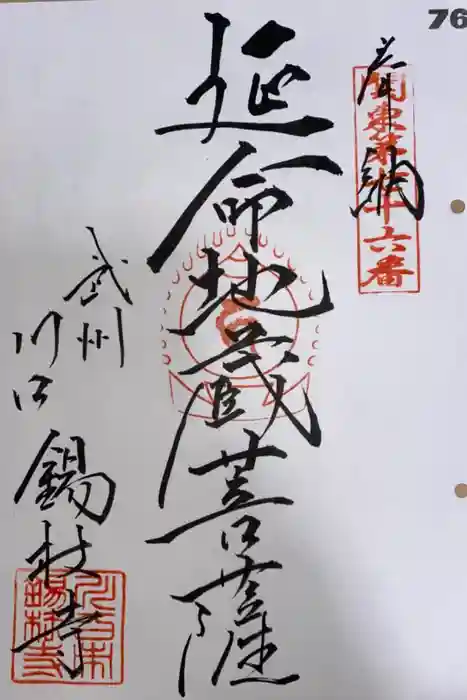 76
奉納
關東第七十六番
延命地蔵菩薩
武州
川口
錫杖寺